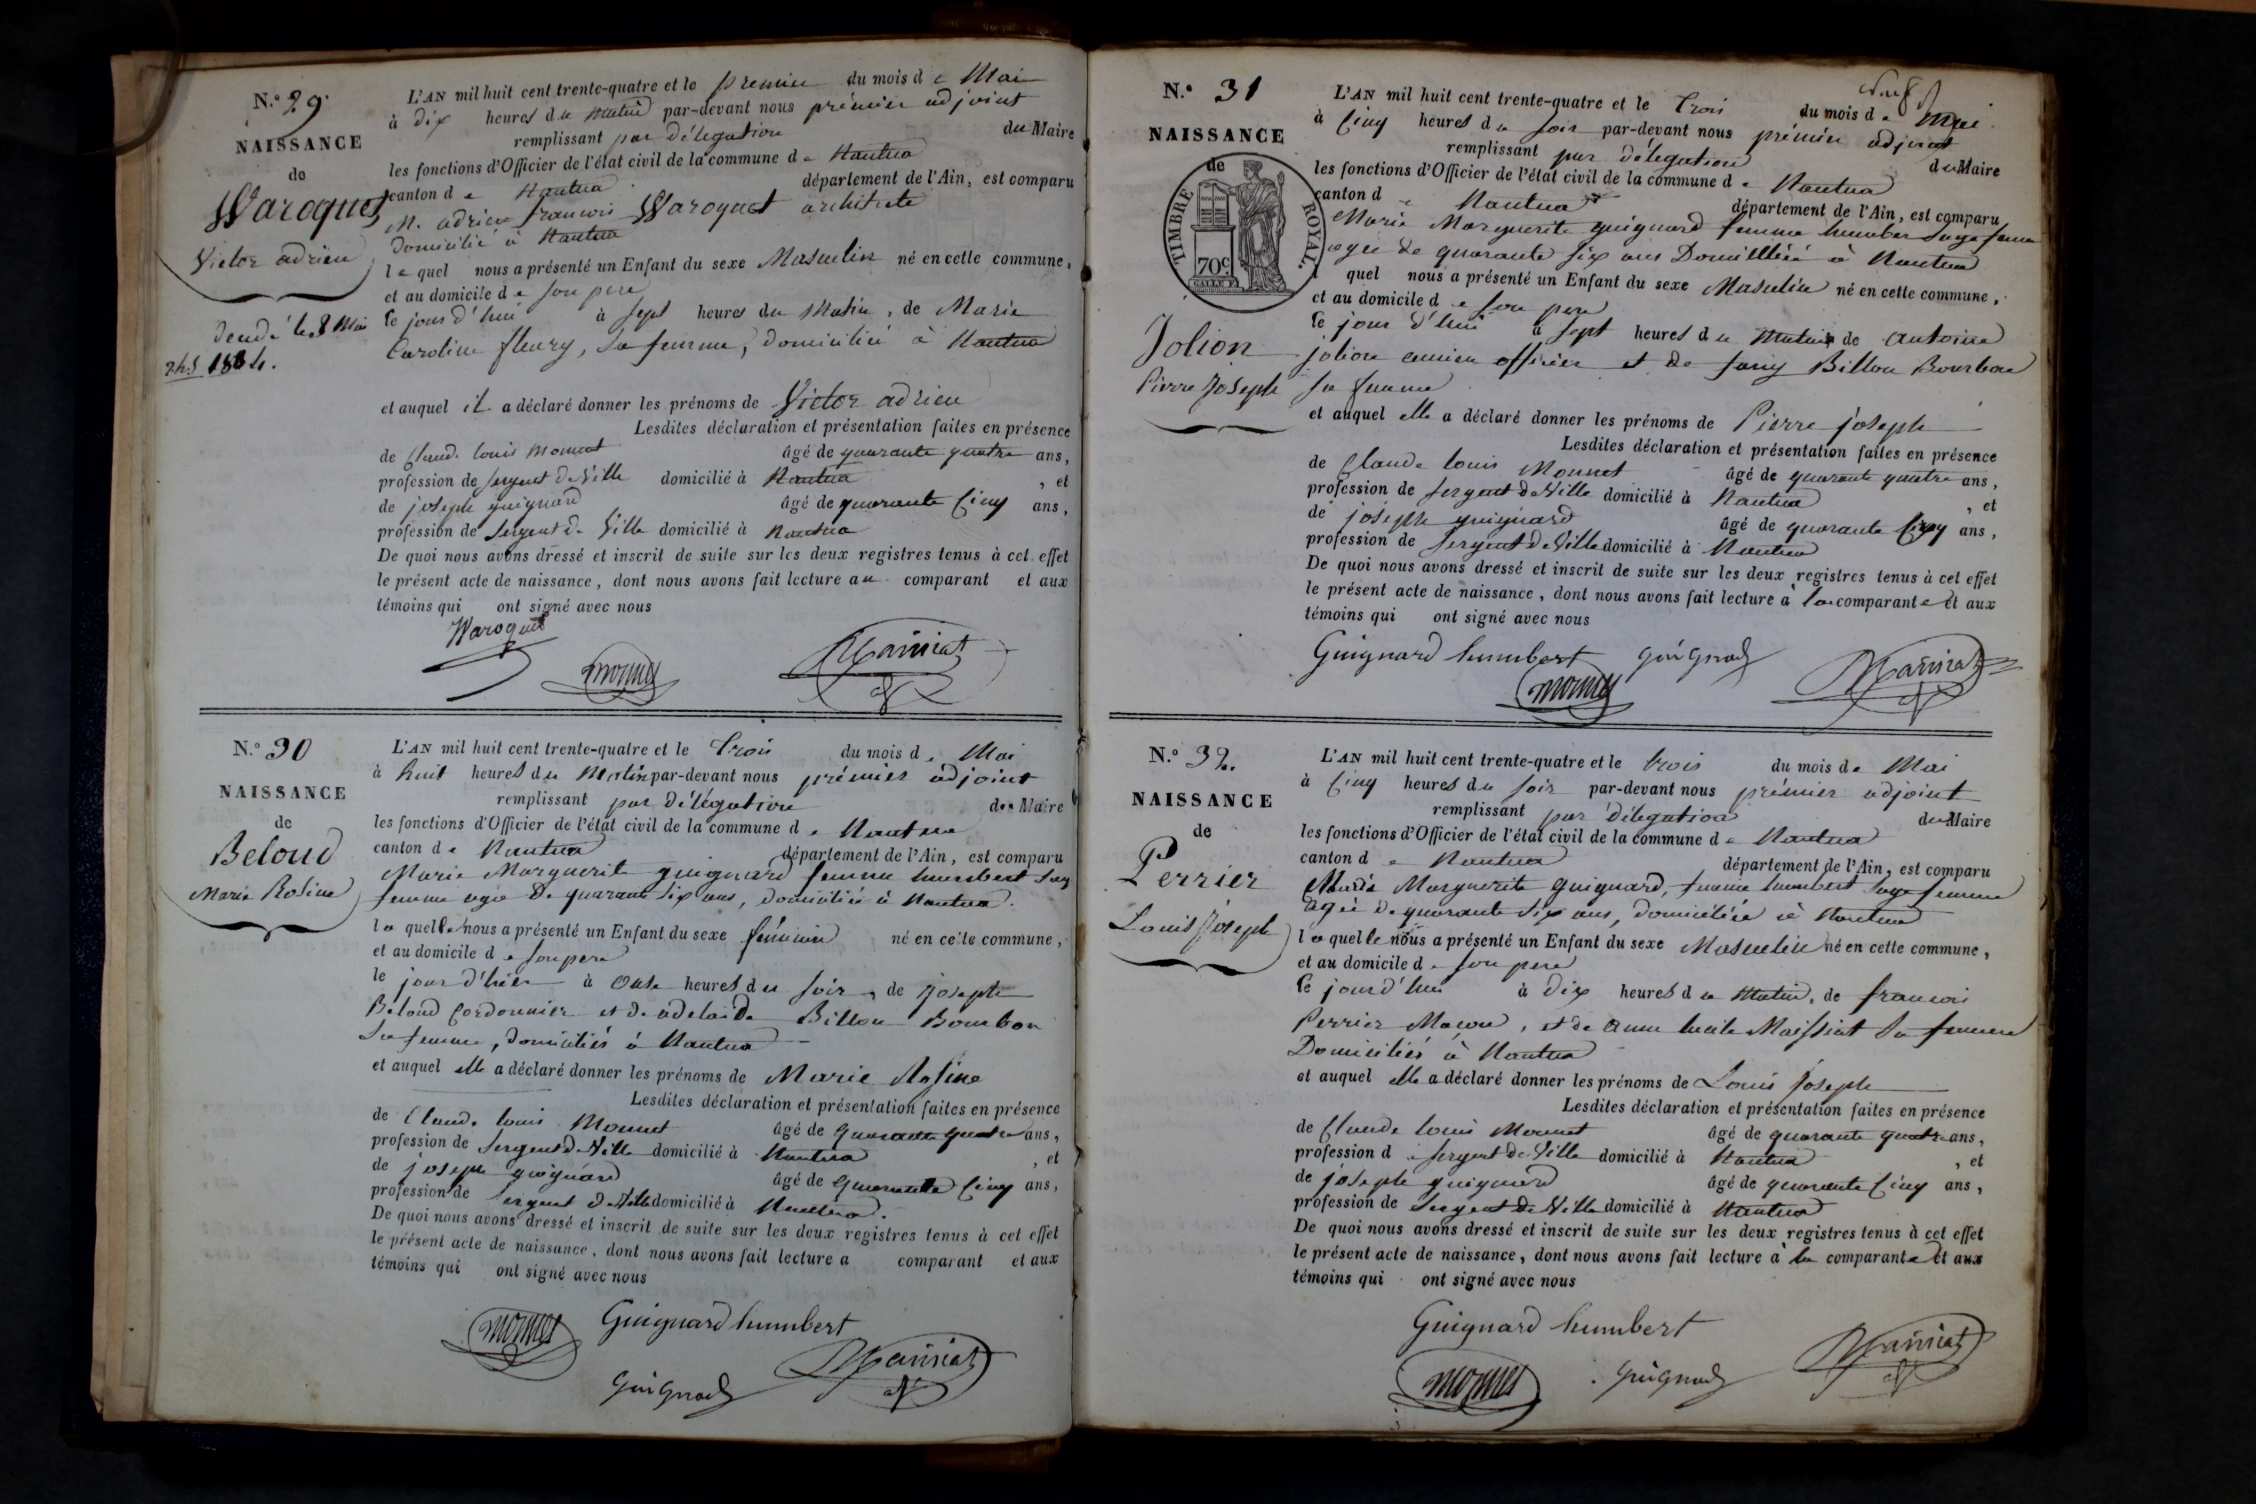 N.º 29
NAISSANCE
de
Waroquet
Victor adrien
décédé le 8 Mai
L'AN mil huit cent trente-quatre et le premier du mois de Mai
à dix heures du matin par-devant nous prémier adjoint
remplissant par délégation du Maire
les fonctions d'Officier de l'état civil de la commune de Nantua
canton de Nantua département de l'Ain, est comparu
M. adrien francois Waroquet architecte
domicilié à Nantua
lequel nous a présenté un Enfant du sexe Masculin né en cette commune,
et au domicile de son pere
le jour d'hui à sept heures du Matin, de Marie
Caroline fleury, sa femme, domiciliée à Nantua
et auquel il a déclaré donner les prénoms de Victor adrien
Lesdites déclaration et présentation faites en présence
de Claude louis Monnet âgé de quarante quatre ans,
profession de sergent de Ville domicilié à Nantua, et
de joseph guignard âgé de quarante Cinq ans,
profession de sergent de Ville domicilié à Nantua
De quoi nous avons dressé et inscrit de suite sur les deux registres tenus à cet effet
le présent acte de naissance, dont nous avons fait lecture au comparant et aux
témoins qui ont signé avec nous
Waroquet
Monnet
N.º 30
NAISSANCE
de
Beloud
Marie Rosine
L'AN mil huit cent trente-quatre et le trois du mois de Mai
à huit heures du Matin par-devant nous prémier adjoint
remplissant par délégation du Maire
les fonctions d'Officier de l'état civil de la commune de Nantua
canton de Nantua département de l'Ain, est comparu
Marie Marguerite guignard femme humbert sage
femme agée de quarante six ans, domiciliée à Nantua.
laquelle nous a présenté un Enfant du sexe féminin né en cette commune,
et au domicile de son pere
le jour d'hier à onze heures du soir, de joseph
Beloud Cordonnier et de adelaide Billon Bourbon
sa femme, domiciliés à Nantua
et auquel elle a déclaré donner les prénoms de Marie Rosine
Lesdites déclaration et présentation faites en présence
de Claude louis Monnet âgé de quarante quatre ans,
profession de sergent de Ville domicilié à Nantua, et
de joseph guignard âgé de quarante Cinq ans,
profession de sergent de Ville domicilié à Nantua.
De quoi nous avons dressé et inscrit de suite sur les deux registres tenus à cet effet
le présent acte de naissance, dont nous avons fait lecture a comparant et aux
témoins qui ont signé avec nous
Monnet Guignard humbert
Guignard
N.º 31
NAISSANCE
de
TIMBRE ROYAL.
70c
Jolion
Pierre Joseph
L'AN mil huit cent trente-quatre et le trois du mois de Mai
à Cinq heures du soir par-devant nous prémier adjoint
remplissant par délégation du Maire
les fonctions d'Officier de l'état civil de la commune de Nantua
canton de Nantua département de l'Ain, est comparu
Marie Marguerite guignard femme humbert sage femme
agée de quarante six ans Domiciliée à Nantua
l quel nous a présenté un Enfant du sexe Masculin né en cette commune,
et au domicile de son pere
le jour d'hui à sept heures du Matin de antoine
jolion ancien officier et de fany Billon Bourbon
sa femme
et auquel elle a déclaré donner les prénoms de Pierre joseph
Lesdites déclaration et présentation faites en présence
de Claude louis Monnet âgé de quarante quatre ans,
profession de sergent de Ville domicilié à Nantua, et
de joseph guignard âgé de quarante Cinq ans,
profession de sergent de Ville domicilié à Nantua
De quoi nous avons dressé et inscrit de suite sur les deux registres tenus à cet effet
le présent acte de naissance, dont nous avons fait lecture à la comparante et aux
témoins qui ont signé avec nous
Guignard humbert Guignard
Monnet
N.º 32.
NAISSANCE
de
Perrier
Louis Joseph
L'AN mil huit cent trente-quatre et le trois du mois de Mai
à Cinq heures du soir par-devant nous prémier adjoint
remplissant par délégation du Maire
les fonctions d'Officier de l'état civil de la commune de Nantua
canton de Nantua département de l'Ain, est comparu
Marie Marguerite guignard, femme humbert sage femme
agée de quarante six ans, domiciliée à Nantua
laquelle nous a présenté un Enfant du sexe Masculin né en cette commune,
et au domicile de son pere
le jour d'hui à dix heures du Matin, de francois
Perrier Maçon, et de anne lucile Maissiat sa femme
Domiciliés à Nantua
et auquel elle a déclaré donner les prénoms de Louis Joseph
Lesdites déclaration et présentation faites en présence
de Claude louis Monnet âgé de quarante quatre ans,
profession de sergent de Ville domicilié à Nantua, et
de joseph guignard âgé de quarante Cinq ans,
profession de sergent de Ville domicilié à Nantua
De quoi nous avons dressé et inscrit de suite sur les deux registres tenus à cet effet
le présent acte de naissance, dont nous avons fait lecture à la comparante et aux
témoins qui ont signé avec nous
Guignard humbert
Monnet Guignard